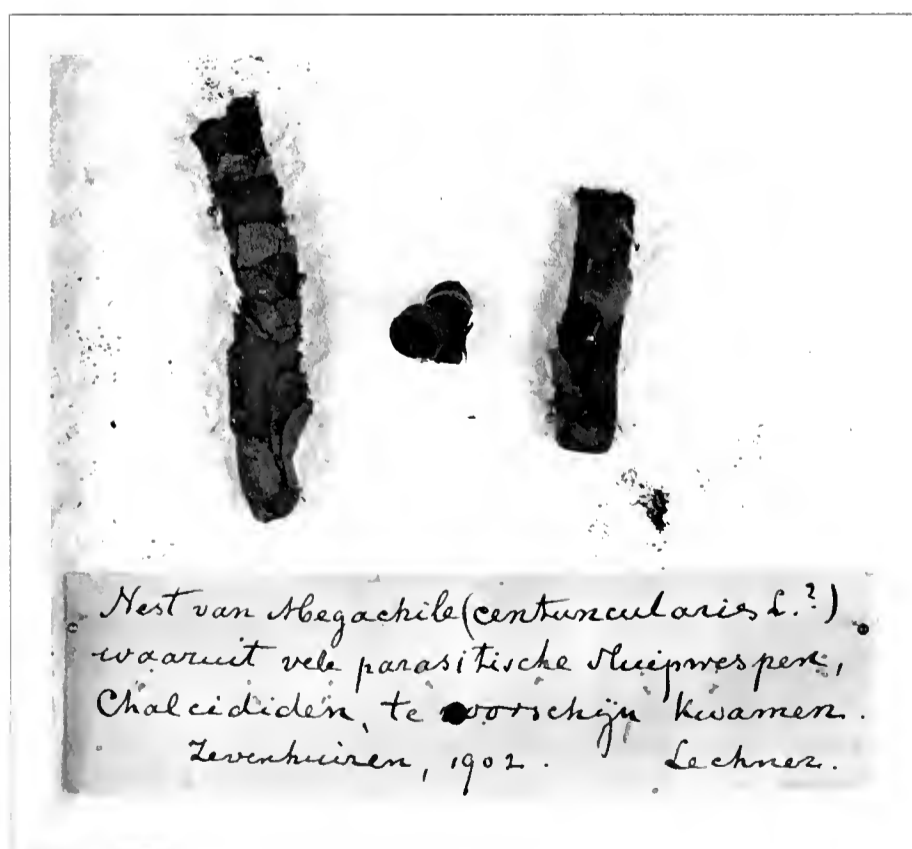 Nest van Megachile (centuncularies L.?)
waaruit vele parasitische sluipwespen,
Chalcididen, te voorschijn kwamen.
Zevenhuizen, 1902. Lechner.